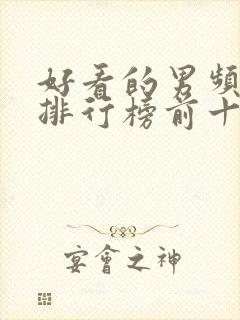 好看的男頻
排行榜前十
宴會之神